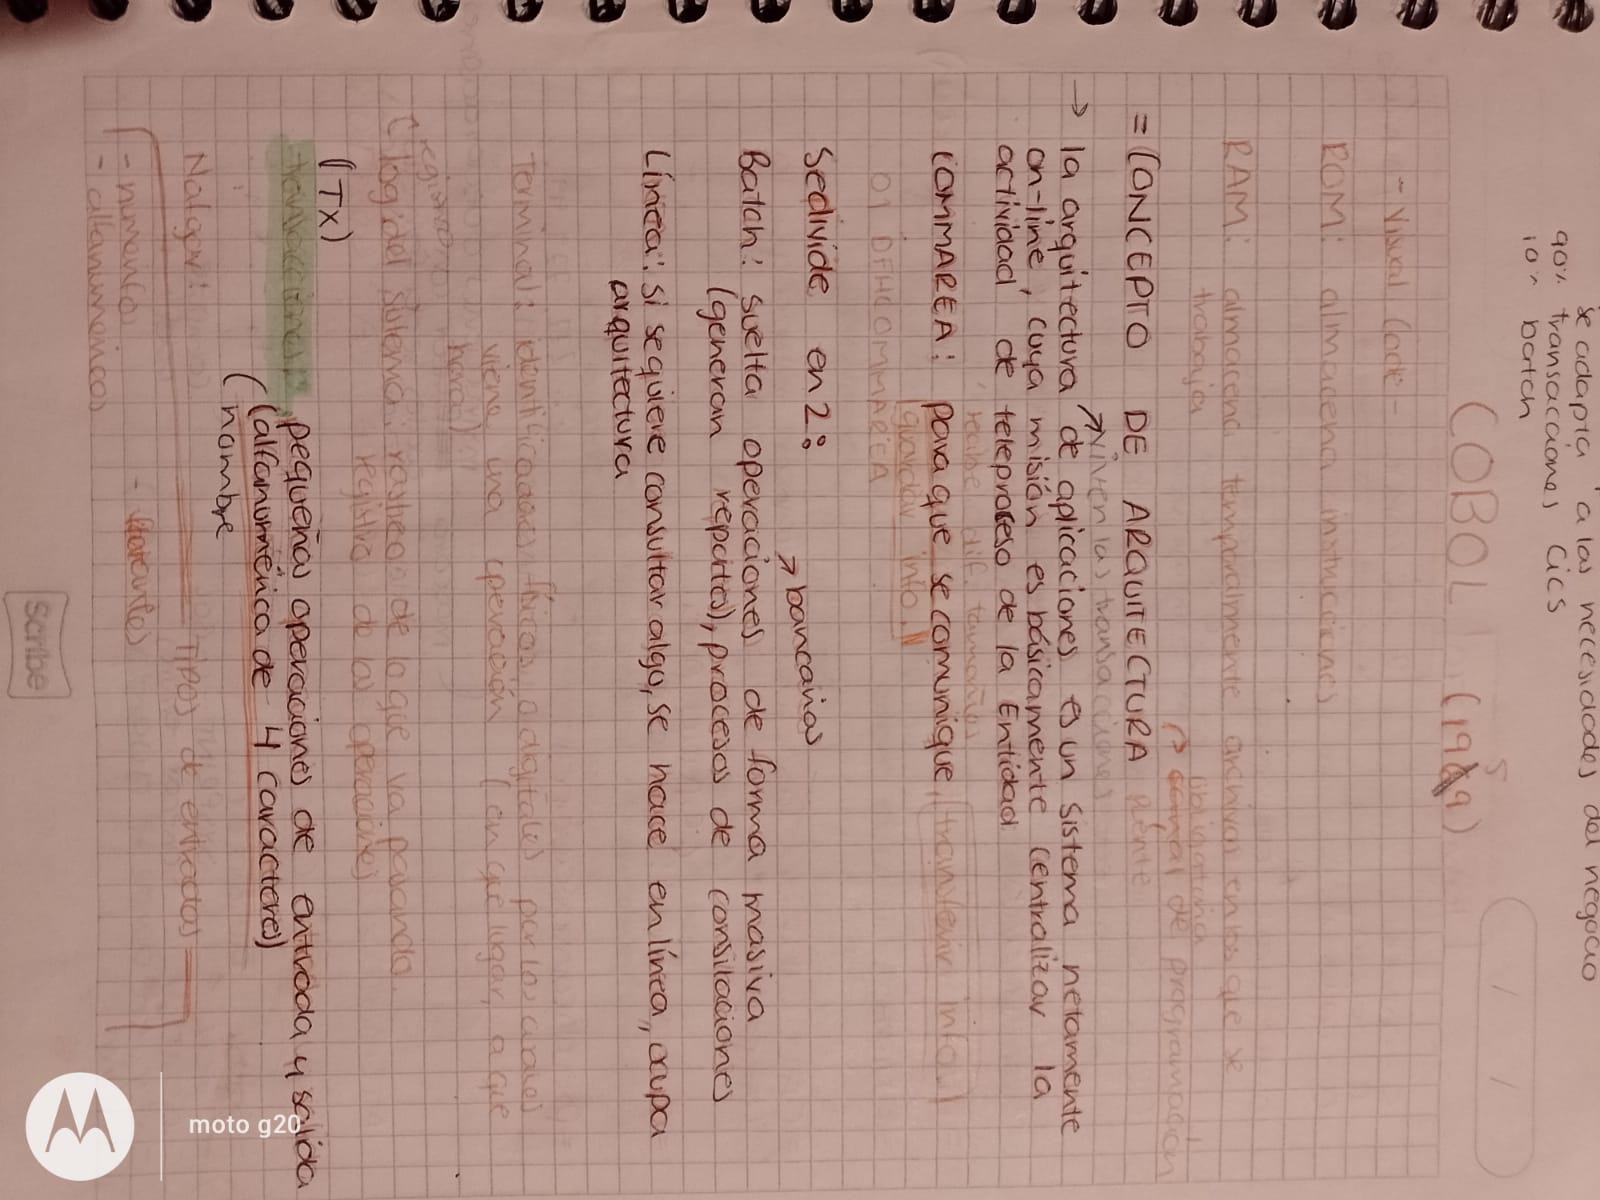 se adapta a las necesidades del negocio
90% transacciones Cics
10% batch
COBOL (1959)
- Visual Code -
ROM: almacena instrucciones
RAM: almacena temporalmente archivos en los que se
trabaja
obligatoria
de programación
= CONCEPTO DE ARQUITECTURA
viven las transacciones
→ la arquitectura de aplicaciones es un sistema netamente
on-line, cuya misión es básicamente centralizar la
actividad de teleproceso de la Entidad
recibe dif. tamaños
COMMAREA: para que se comunique, (transferir info.)
guardar info.
01 DFHCOMMAREA
Sedivide en 2:
→ bancarias
Batch: suelta operaciones de forma masiva
(generan reportes), procesos de consiliaciones
Línea: si se quiere consultar algo, se hace en línea, ocupa
arquitectura
Terminal: identificadores físicos o digitales por los cuales
viene una operación (en qué lugar, a que
hora)
Log del sistema: rastreo de lo que va pasando.
registro de las operaciones
(TX)
transacciones: pequeñas operaciones de entrada y salida
(alfanumérica de 4 caracteres)
(nombre
Nalgor: TIPOS de entradas
- numérico
- alfanumérico
scribe
moto g20